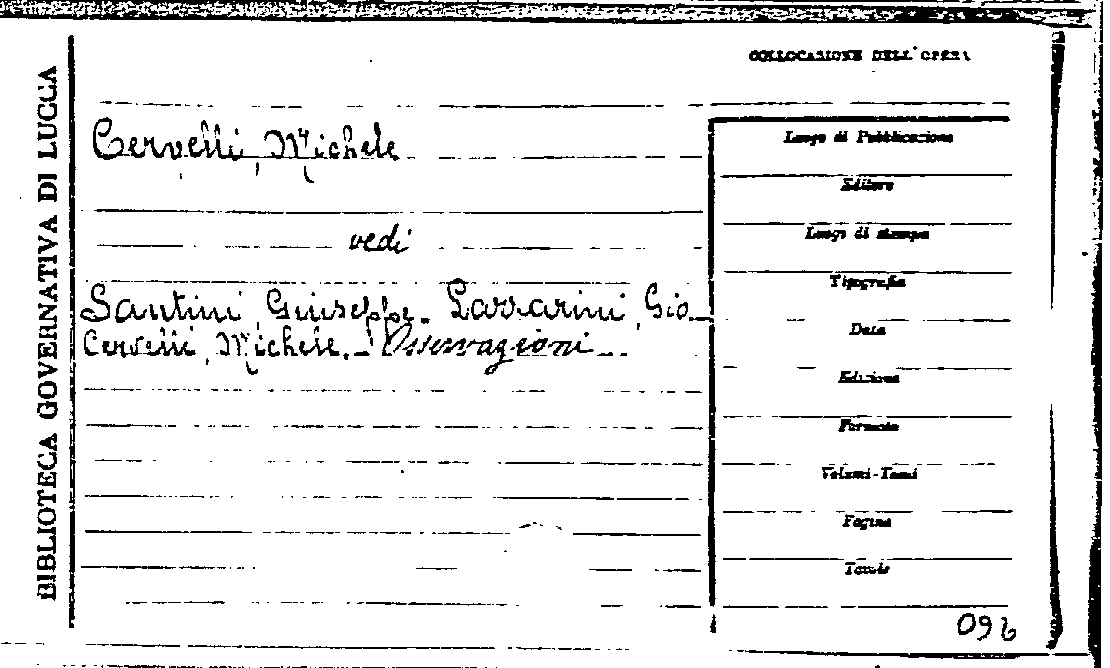 BIBLIOTECA GOVERNATIVA DI LUCCA
COLLOCAZIONE DELL'OPERA
Cervelli, Michele
vedi
Santini, Giuseppe. Lazzarini, Gio.
Cervelli, Michele. - Osservazioni -..
Luogo di Pubblicazione
Editore
Luogo di stampa
Tipografia
Data
Edizione
Formato
Volumi-Tomi
Pagine
Tavole